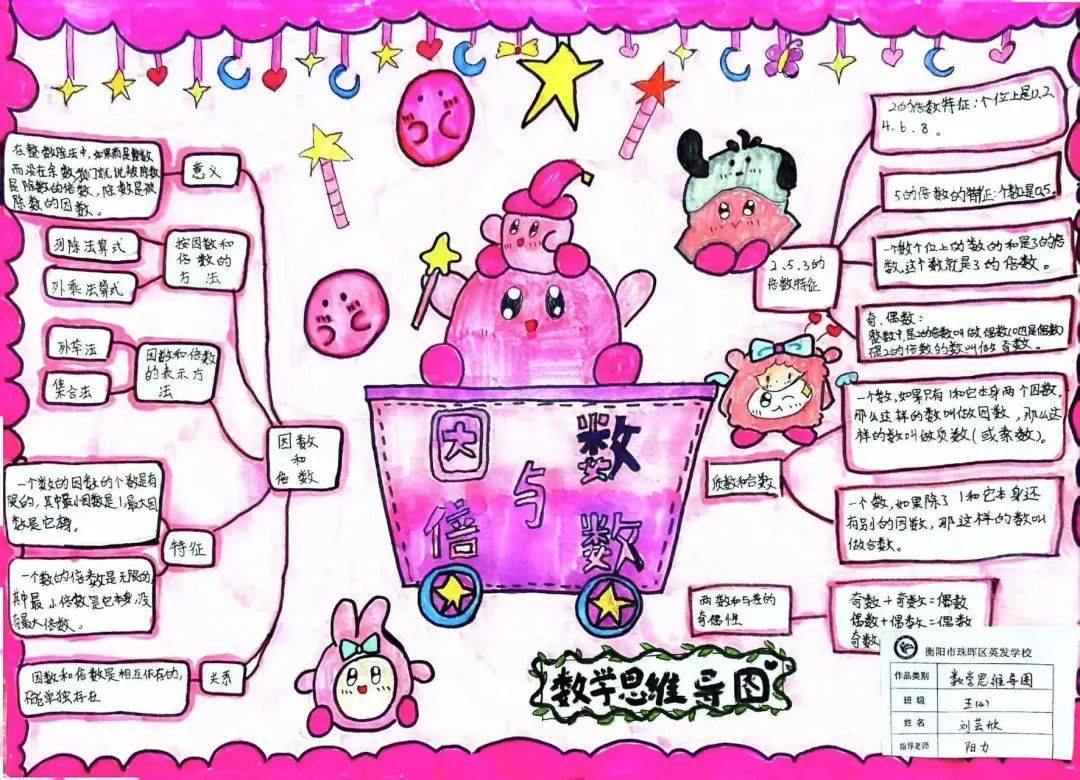 在整数除法中,如果商是整数
而没在余数我们就说被除数
是除数的倍数,除数是被
除数的因数。
意义
列除法算式
列乘法算式
按因数和
倍数的
方法
列举法
集合法
因数和倍数
的表示方
法
因数
和
倍数
一个数的因数的个数是有
限的,其中最小因数是1,最大因
数是它
一个数的倍数是无限的,
其中最小倍数是它本身,没
有最大倍数。
特征
因数和倍数是相互依存的,
不能单独存在
关系
因与数
倍数
数学思维导图
2的倍数特征:个位上是0.2
4.6.8。
5的倍数的特征:个数是0.5。
一个数个位上的数的和是3的倍
数,这个数就是3的倍数。
奇、偶数:
整数中,是2的倍数叫做偶数(0也是偶数)
2的倍数的数叫做奇数。
2.5.3的
倍数特征
一个数,如果只有1和它本身两个因数,
那么这样的数叫做因数,那么这
样的数叫做质数(或素数)。
质数和合数
一个数,如果除了1和它本身还
有别的因数,那这样的数叫
做合数。
两数和与差的
奇偶性
奇数+奇数=偶数
偶数+偶数=偶数
奇数
衡阳市珠晖区英发学校
作品类别 数学思维导图
班级 五(4)
姓名 刘芸欣
指导老师 阳力